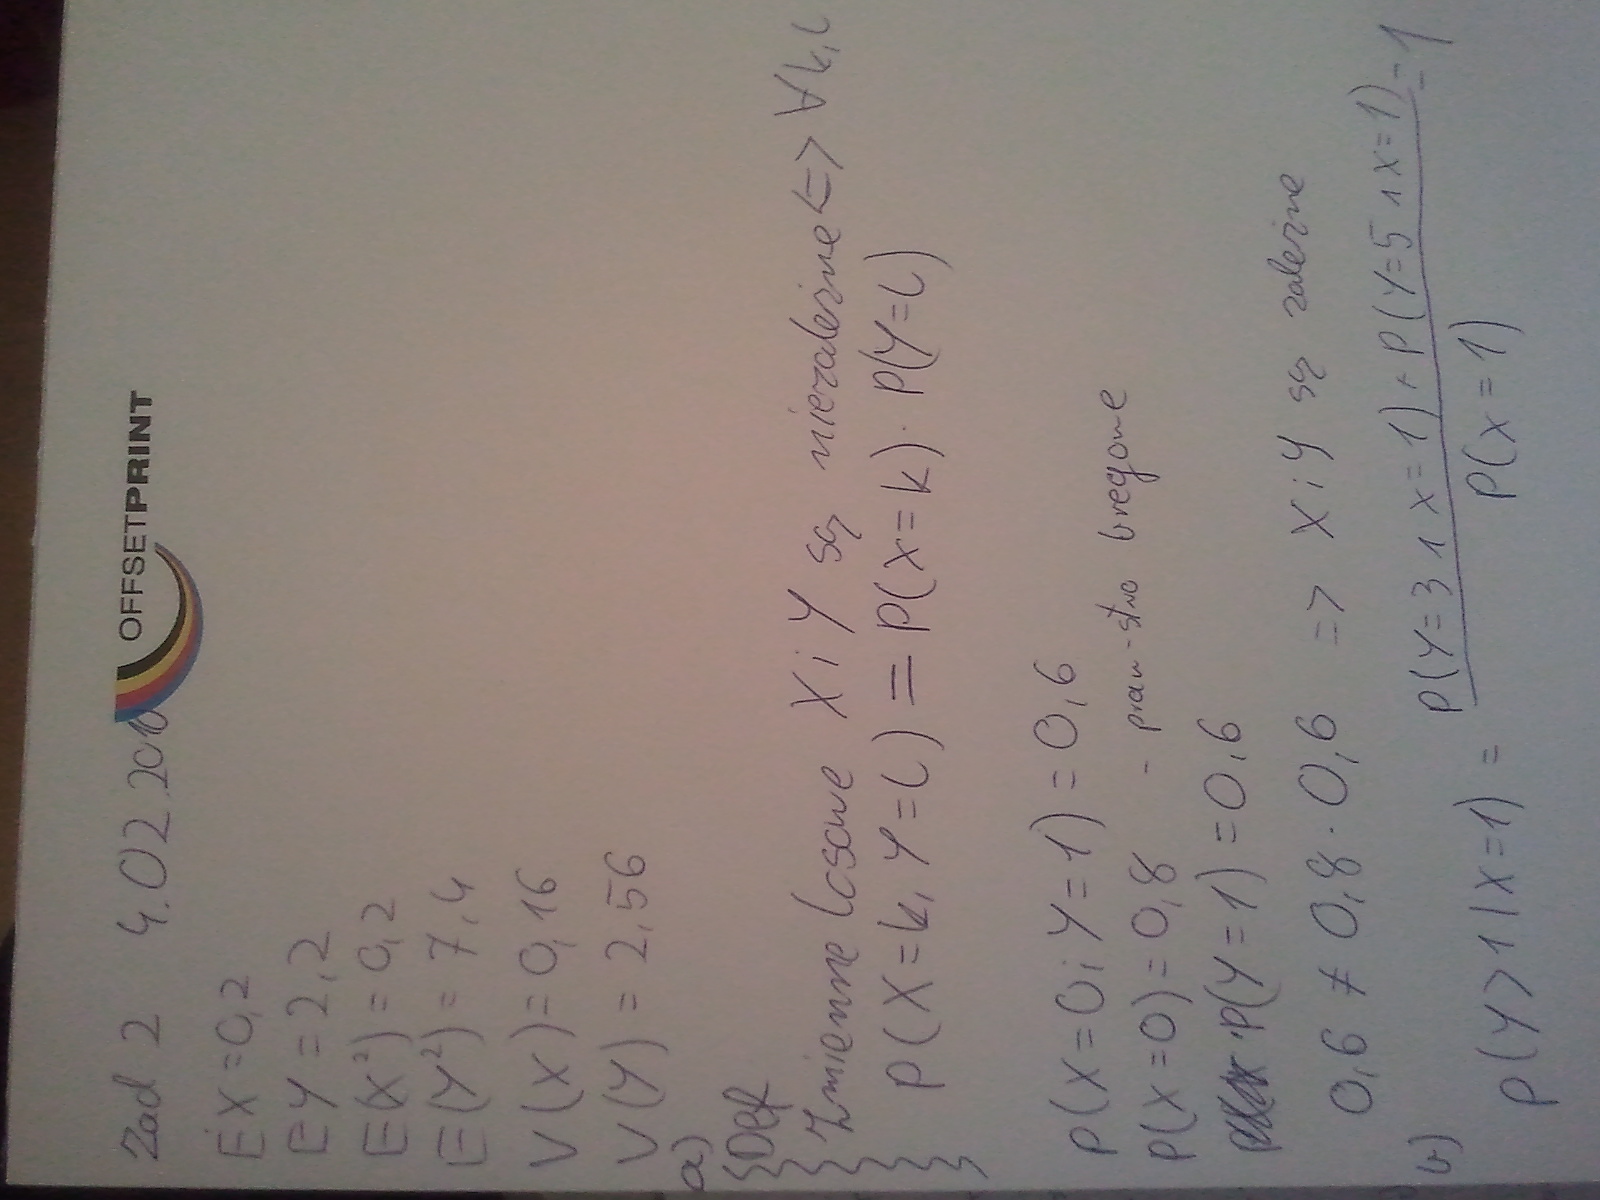 OFFSETPRINT
Zad 2 4.02.2010
EX = 0,2
EY = 2,2
E(X²) = 0,2
E(Y²) = 7,4
V(X) = 0,16
V(Y) = 2,56
a)
Def
Zmienne losowe X i Y są niezależne <=> ∀ k, l
P(X = k, Y = l) = P(X = k) · P(Y = l)
P(X = 0 i Y = 1) = 0,6
P(X = 0) = 0,8 - praw-stwo brzegowe
P(Y = 1) = 0,6
0,6 ≠ 0,8 · 0,6 => X i Y są zależne
b) P(Y > 1 | X = 1) = P(Y = 3 ∧ X = 1) + P(Y = 5 ∧ X = 1) = 1
P(X = 1)